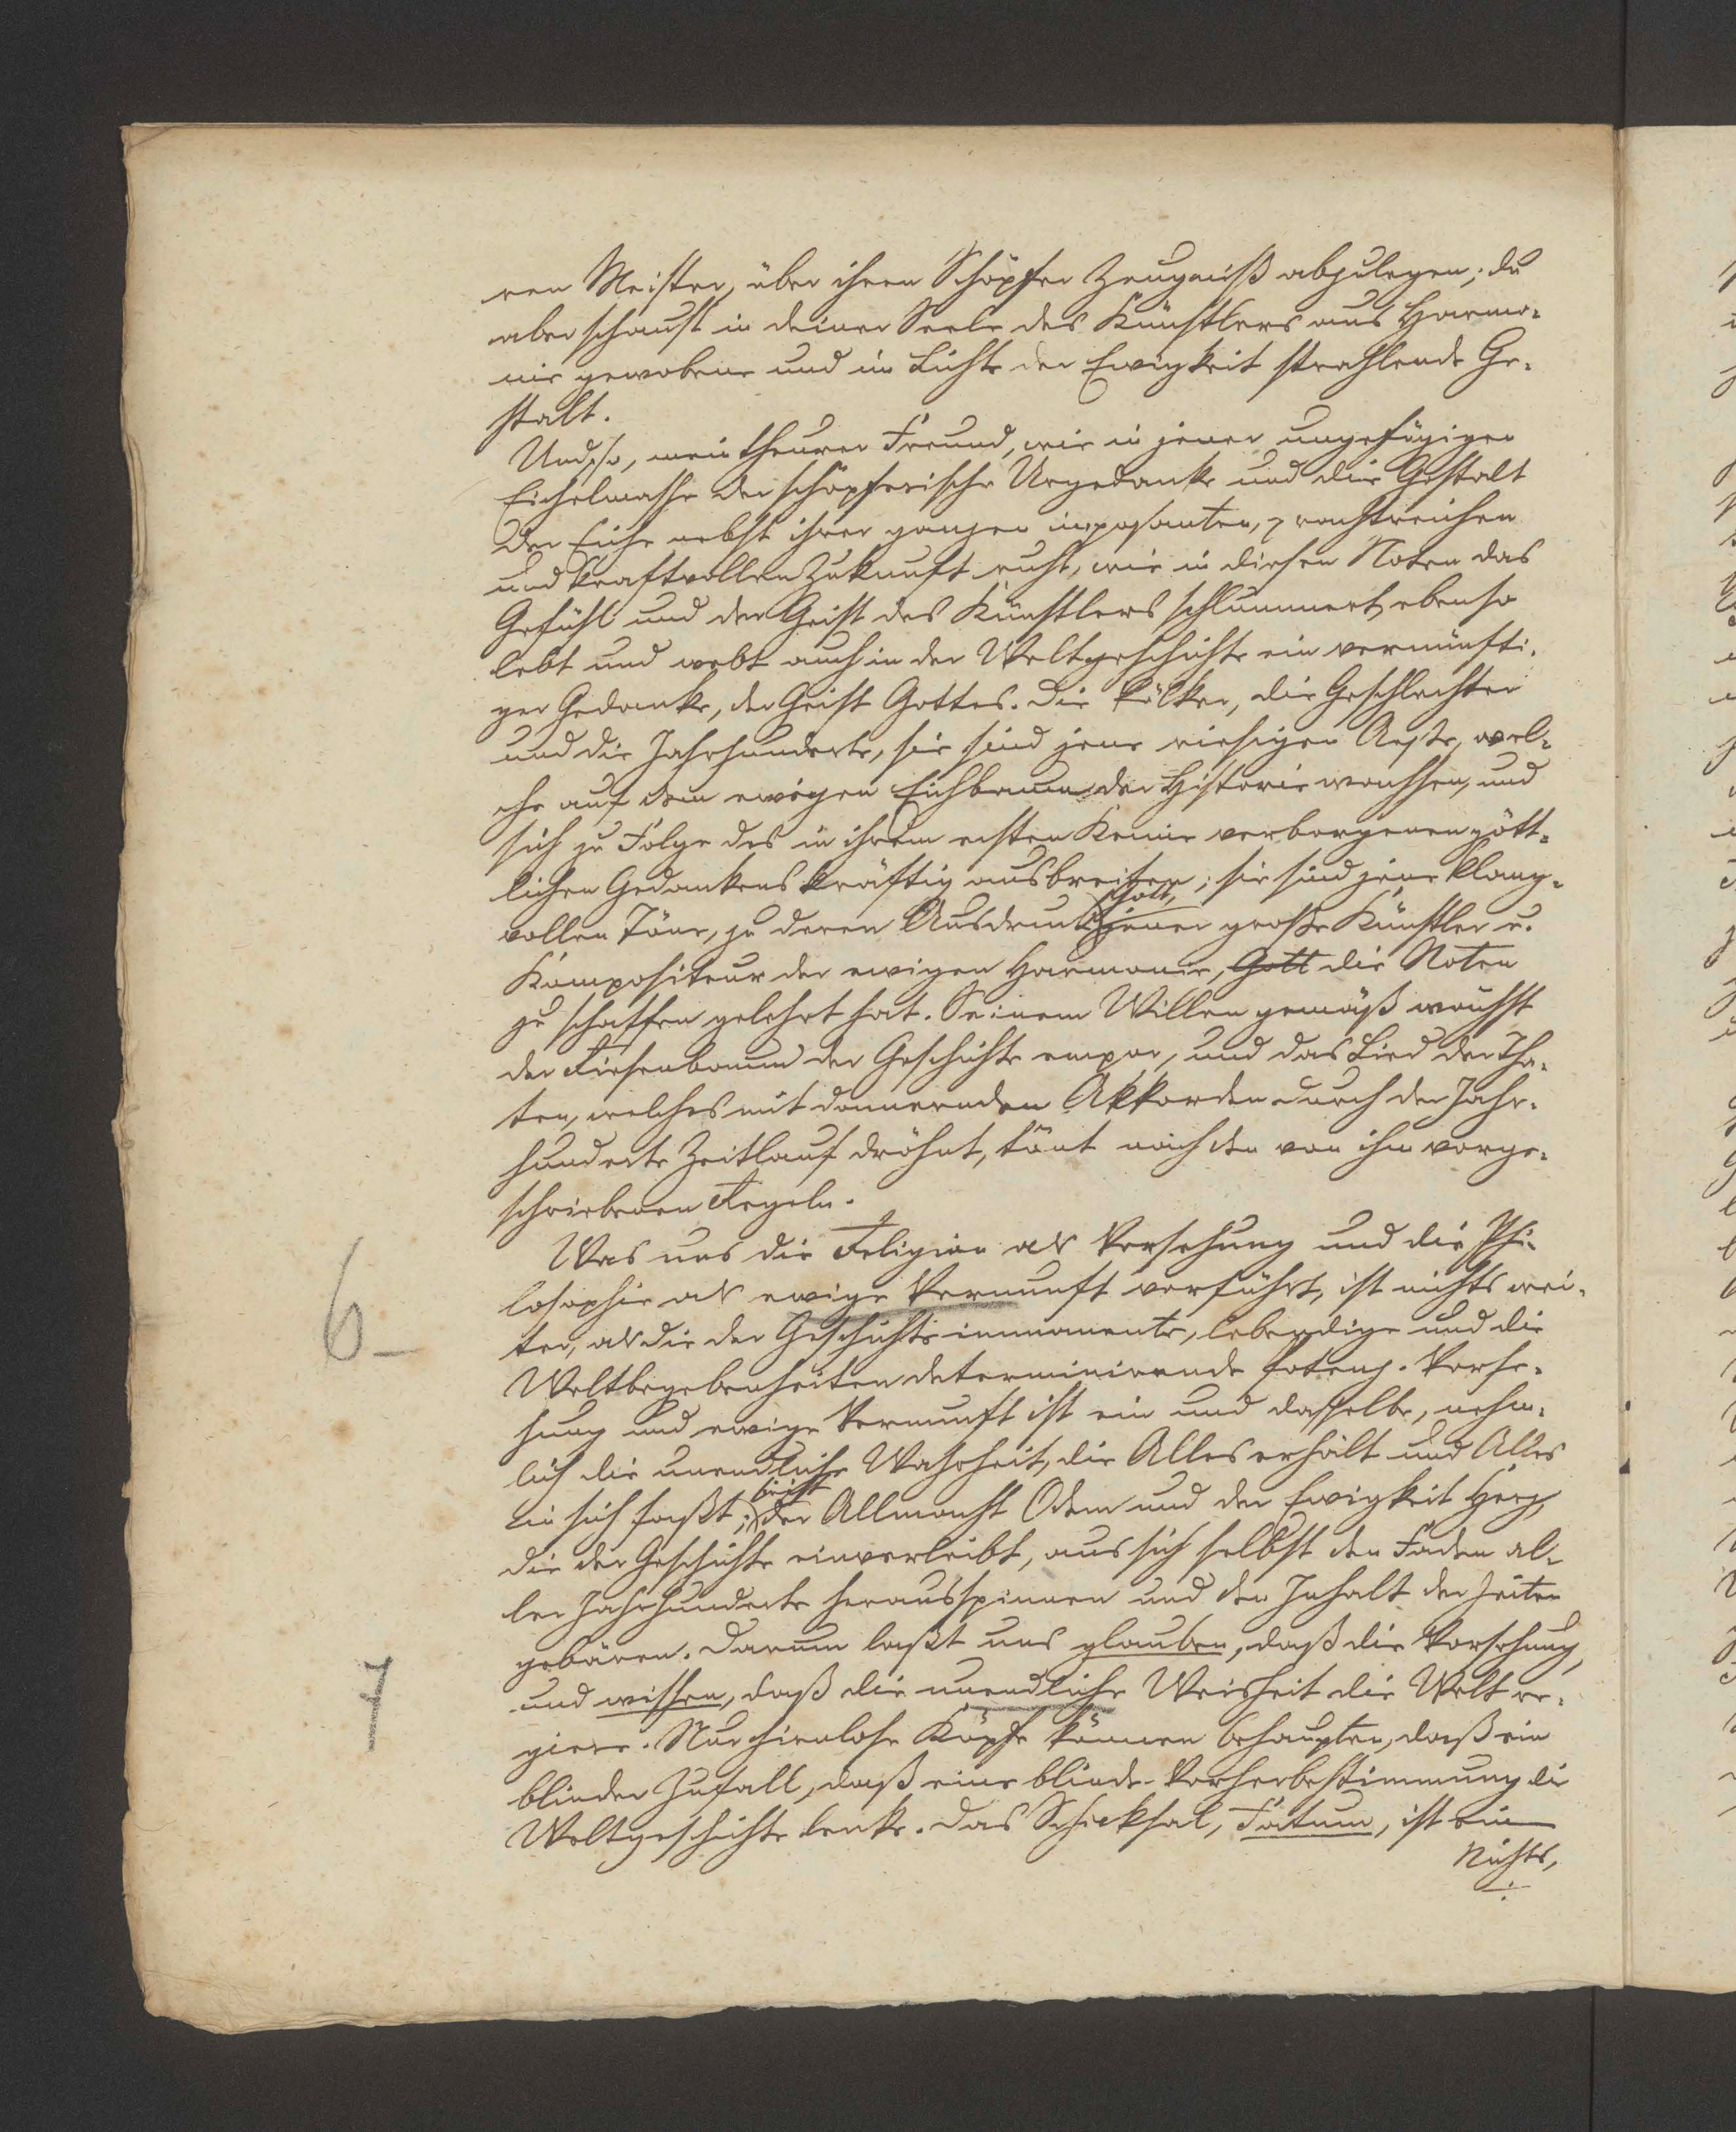 ren Meister, über ihren Schöpfer Zeugniß abzulegen; du
aber schaust in deiner Seele des Künstlers aus Harmo-
nie gewobene und im Lichte der Ewigkeit strahlende Ge-
stalt.
Und so, mein theurer Freund, wie in jener ungefügigen
Eichelmasse der schöpferische Urgedanke und die Gestalt
der Eiche nebst ihrer ganzen imposanten, prachtreichen
und kraftvollen Zukunft ruht, wie in diesen Noten das
Gefühl und der Geist des Künstlers schlummert, ebenso
lebt und webt auch in der Weltgeschichte ein vernünfti-
ger Gedanke, der Geist Gottes. Die Völker, die Geschlechter
und die Jahrhunderte, sie sind jene riesigen Aeste, wel-
che auf dem ewigen Eichbaum der Historie wachsen, und
sich zu Folge des in ihrem ersten Keime verborgenen gött-
lichen Gedankens kräftig ausbreiten; sie sind jene klang-
Gott,
vollen Töne, zu deren Ausdruck jener große Künstler u.
Kompositeur der ewigen Harmonie, Gott die Noten
zu schaffen gelehrt hat. Seinem Willen gemäß wächst
der Riesenbaum der Geschichte empor, und das Lied der Tha-
ten, welches mit donnernden Akkorden durch der Jahr-
hunderte Zeitlauf dröhnt, tönt nach den von ihm vorge-
schriebenen Regeln.
Was uns die Religion als Vorsehung und die Phi-
losophie als ewige Vernunft vorführt, ist nichts wei-
6-
ter, als die der Geschichte immanente, lebendige und die
Weltbegebenheiten determinirende Potenz. Vorse-
hung und ewige Vernunft ist ein und dasselbe, nehm-
lich die unendliche Wahrheit, die Alles erhält und Alles
in sich faßt; der Allmacht Odem und der Ewigkeit Herz,
die der Geschichte einverleibt, aus sich selbst den Faden al-
ler Jahrhunderte herausspinnen und den Inhalt der Zeiten
gebären. Darum laßt uns glauben, daß die Vorsehung,
7
und wissen, daß die unendliche Weisheit die Welt re-
giere. Nur hirnlose Köpfe können behaupten, daß ein
blinder Zufall, daß eine blinde Vorherbestimmung die
Weltgeschichte lenke. Das Schicksal, Fatum, ist ein
Nichts,